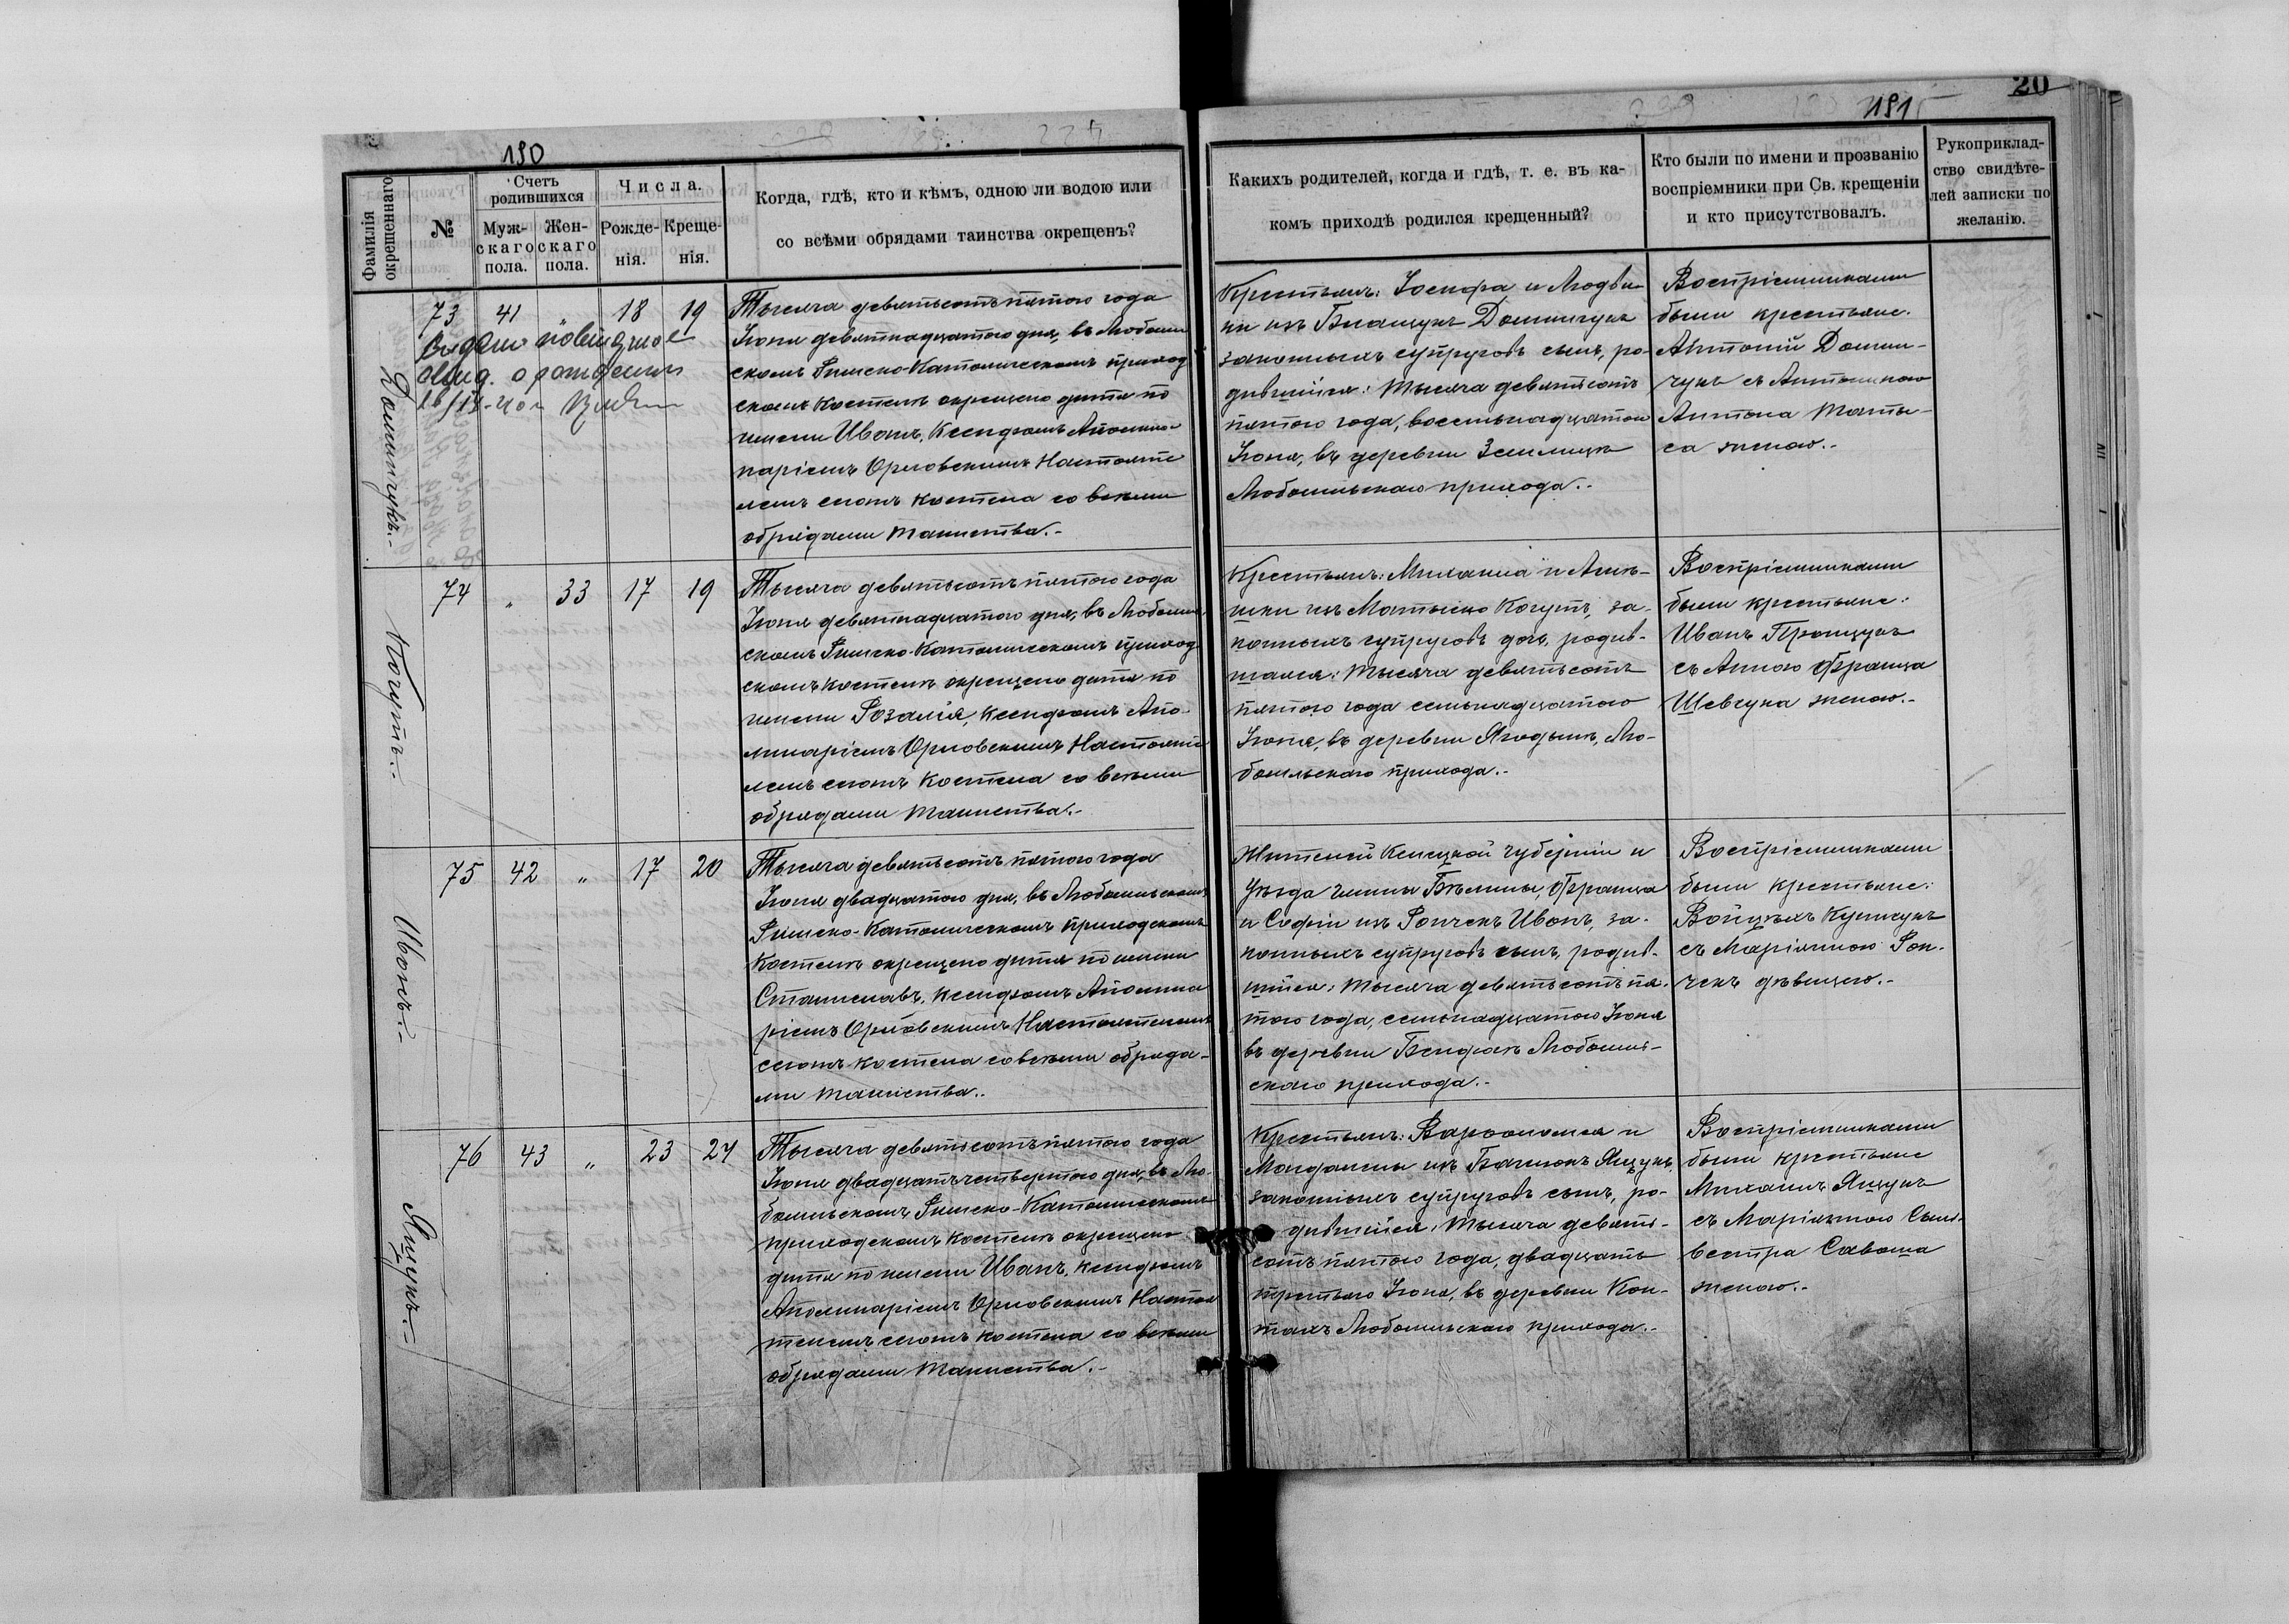 190
Фамилія окрещеннаго
№
Счетъ родившихся
Муж-
скаго
пола.
Жен-
скаго
пола.
Числа.
Рожде-
нія.
Креще-
нія.
Когда, гдѣ, кто и кѣмъ, одною ли водою или
со всѣми обрядами таинства окрещенъ?
73 41 „ 18 19
о рожденіи
Доминчукъ.-
Тысяча девятьсотъ пятого года
Іюня девятнадцатого дня, въ Любомль
скомъ Римско-Католическомъ приход
скомъ костелѣ окрещено дитя по
имени Иванъ, Ксендзомъ Аполли-
наріемъ Орловскимъ Настояте
лемъ сего костела со всѣми
обрядами таинства.-
74 „ 33 17 19
Когутъ.-
Тысяча девятьсотъ пятого года
Іюня девятнадцатого дня, въ Любомль
скомъ Римско-Католическомъ приход
скомъ костелѣ окрещено дитя по
имени Розалія, Ксендзомъ Апо-
линаріемъ Орловскимъ Настояте
лемъ сего костела со всѣми
обрядами таинства.-
75 42 „ 17 20
Ивонъ.-
Тысяча девятьсотъ пятого года
Іюня двадцатого дня, въ Любомльскомъ
Римско-Католическомъ приходскомъ
костелѣ окрещено дитя по имени
Станиславъ, Ксендзомъ Аполина
ріемъ Орловскимъ Настоятелемъ
сего костела со всѣми обряда-
ми таинства.-
76 43 „ 23 24
Ящукъ.-
Тысяча девятьсотъ пятого года
Іюня двадцать четвертого дня, въ Лю-
бомльскомъ Римско-Католическомъ
приходскомъ костелѣ окрещено
дитя по имени Иванъ, Ксендзомъ
Аполинаріемъ Орловскимъ Настоя
телемъ сего костела со всѣми
обрядами таинства.-
191
20
Какихъ родителей, когда и гдѣ, т. е. въ ка-
комъ приходѣ родился крещенный?
Кто были по имени и прозванію
воспріемники при Св. крещеніи
и кто присутствовалъ.
Рукоприклад-
ство свидѣте-
лей записки по
желанію.
Крестьянъ: Іосифа и Людви
ки изъ Доминчукъ
законныхъ супруговъ сынъ, ро-
дившійся: Тысяча девятьсотъ
пятого года, восемнадцатого
Іюня, въ деревни Землица
Любомльскаго прихода.-
Воспріемниками
были крестьяне.
Антоній Домин-
чукъ съ Антониною
Антона Маты-
са женою.-
Крестьянъ: Михаила и Агнѣ-
шки изъ Матысъ Когутъ, за-
конныхъ супруговъ дочь, родив-
шаяся: Тысяча девятьсотъ
пятого года семнадцатого
Іюня, въ деревни Ягодынѣ, Лю-
бомльскаго прихода.-
Воспріемниками
были крестьяне:
Иванъ
съ Анною Франца
Шевчука женою.-
Жителей Келецкой губерніи и
уѣзда гмины Бѣлины, Франца
и Софіи изъ Рончекъ Ивонъ, за-
конныхъ супруговъ сынъ, родив-
шійся: Тысяча девятьсотъ пя-
того года, семнадцатого Іюня
въ деревни Любомль-
скаго прихода.-
Воспріемниками
были крестьяне:
Войцѣхъ
съ Маріянною Рон-
чекъ дѣвицею.-
Крестьянъ: Варфоломея и
Магдалины изъ Ящукъ,
законныхъ супруговъ сынъ, ро-
дившійся: Тысяча девять-
сотъ пятого года, двадцать
третьяго Іюня, въ деревни Кон-
тахъ Любомльскаго прихода.-
Воспріемниками
были крестьяне
Михаилъ Ящукъ
съ Маріянною Силь-
вестра Саваша
женою.-